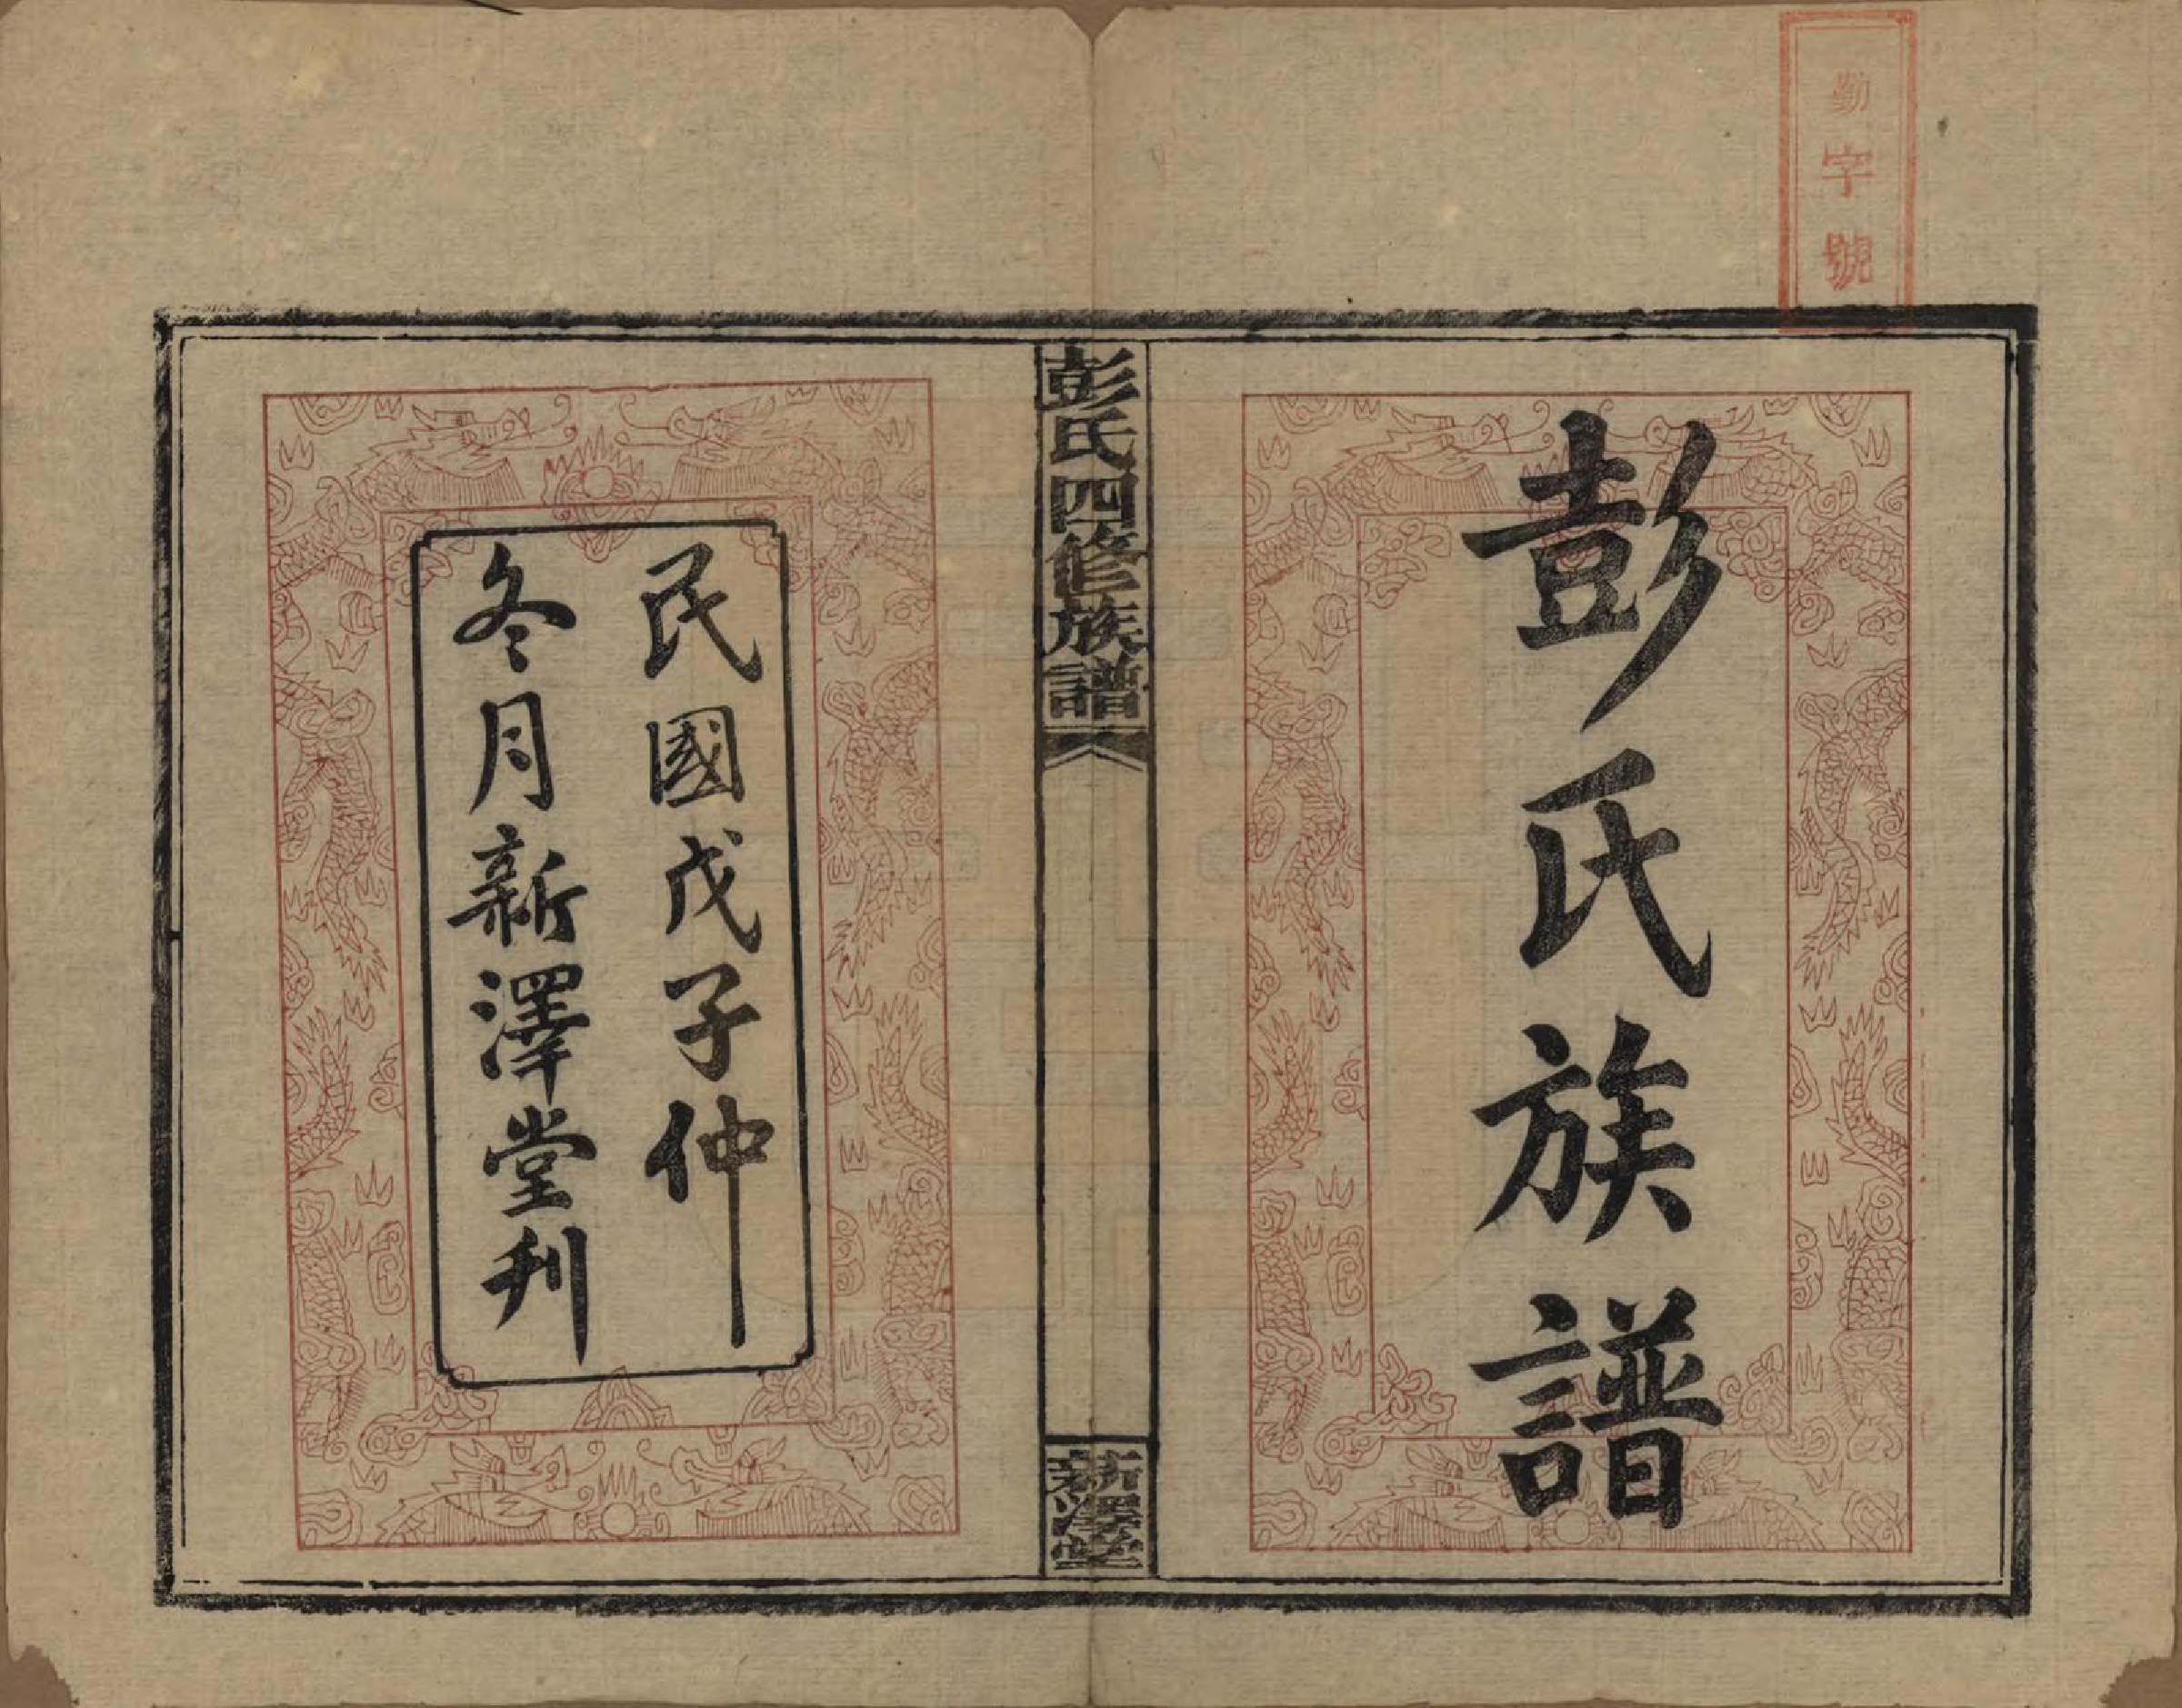 勤字號
彭氏族譜
彭氏四修族譜
新澤堂
民國戊子仲
冬月新澤堂刋